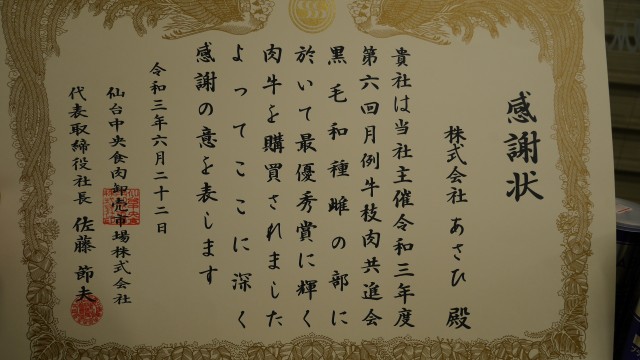 感謝状
株式会社 あさひ 殿
貴社は当社主催令和三年度
第六回月例牛枝肉共進会
黒毛和種雌の部に
於いて最優秀賞に輝く
肉牛を購買されました
よってここに深く
感謝の意を表します
令和三年六月二十二日
仙台中央食肉卸売市場株式会社
代表取締役社長 佐藤 節夫